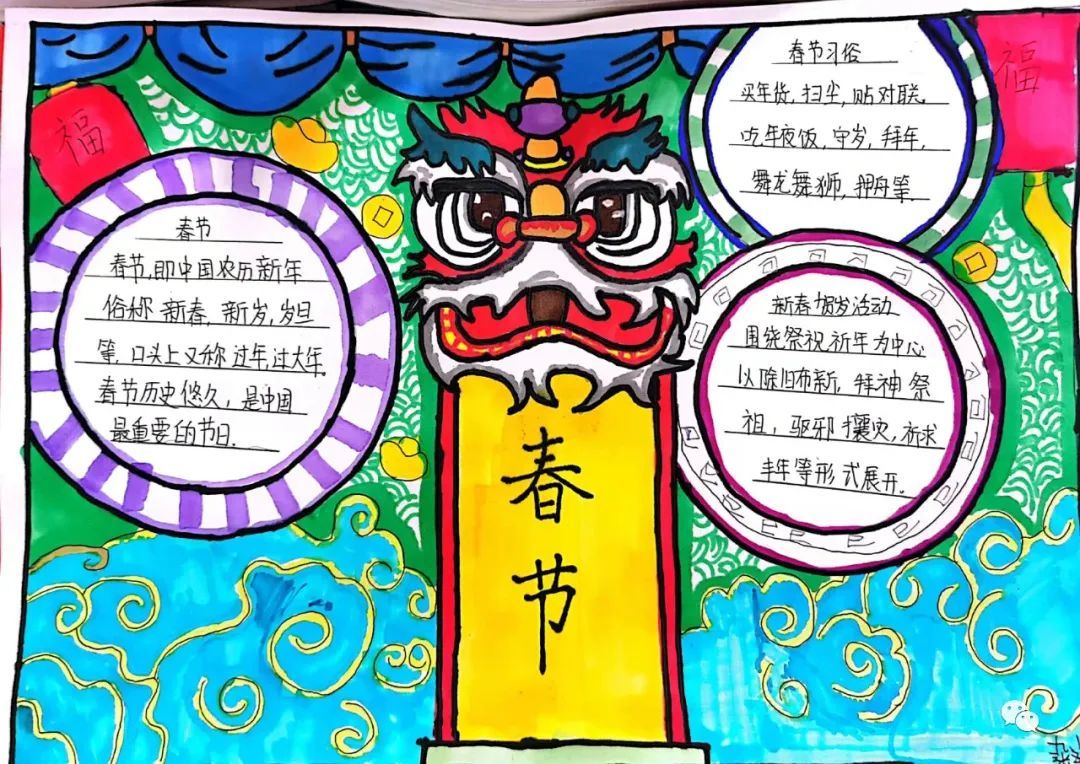 福
春节
春节,即中国农历新年
俗称 新春,新岁,岁旦
等,口头上又称 过年,过大年.
春节历史悠久,是中国
最重要的节日.
春
节
春节习俗
买年货,扫尘,贴对联,
吃年夜饭,守岁,拜年,
舞龙舞狮,押舟等.
福
新春贺岁活动
围绕祭祝祈年为中心
以除旧布新,拜神祭
祖,驱邪攘灾,祈求
丰年等形式展开.